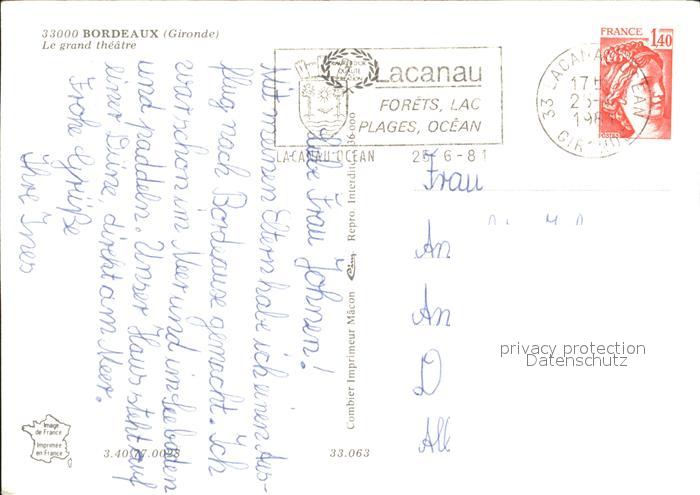 33000 BORDEAUX (Gironde)
Le grand théâtre
Lacanau
FORÊTS, LAC
PLAGES, OCÉAN
LACANAU OCEAN 25-6-81
33 LACANAU OCEAN
GIRONDE
FRANCE
1,40
POSTES
Liebe Frau Johnen!
Mit meinen Eltern habe ich einen Aus-
flug nach Bordeaux gemacht. Ich
war schon im Meer und im See baden
und paddeln. Unser Haus steht auf
einer Düne, direkt am Meer.
Frohe Grüße
Ihre Ines
Combier Imprimeur Mâcon Cim Repro. Interdite 36-000
Frau
An
An
D
All
privacy protection
Datenschutz
Image
de France
Imprimée
en France
3.40.77.0028
33.063